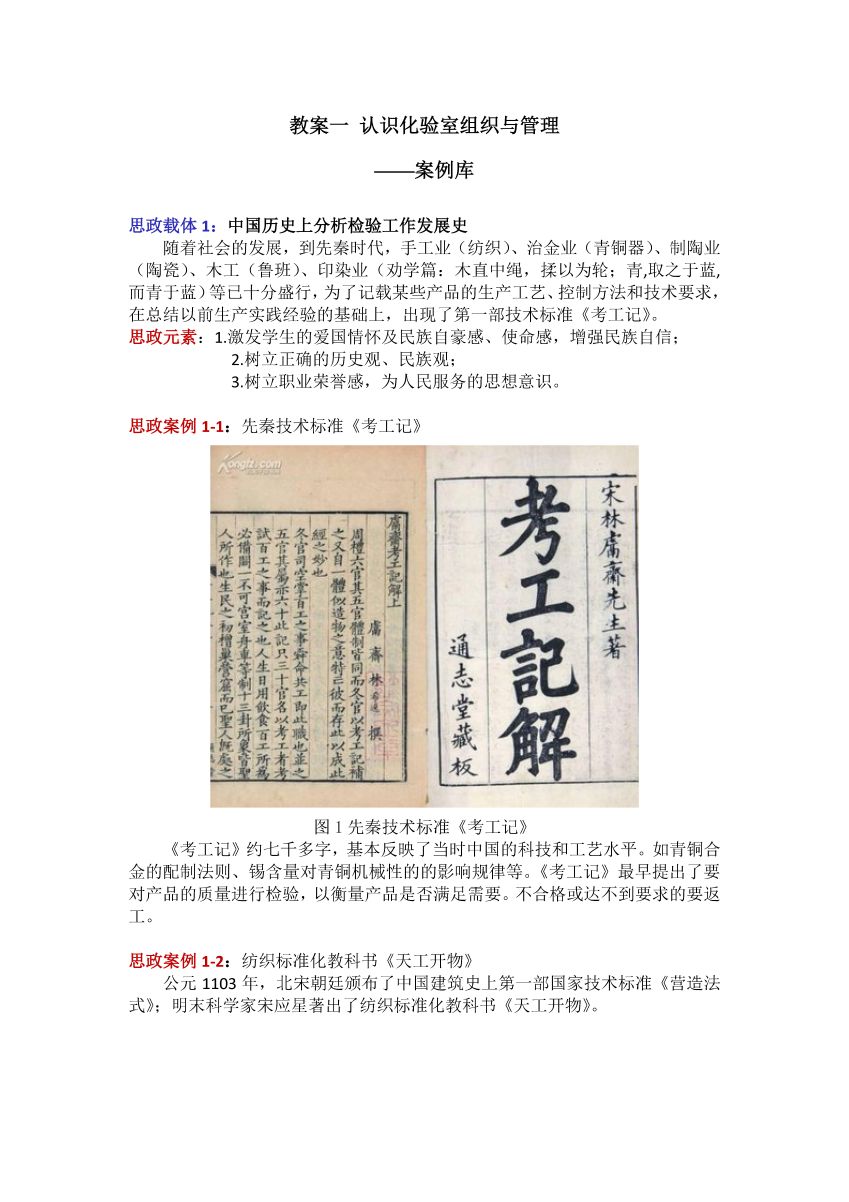 教案一 认识化验室组织与管理
——案例库
思政载体 1：中国历史上分析检验工作发展史
随着社会的发展，到先秦时代，手工业（纺织）、治金业（青铜器）、制陶业
（陶瓷）、木工（鲁班）、印染业（劝学篇：木直中绳，揉以为轮；青,取之于蓝,
而青于蓝）等已十分盛行，为了记载某些产品的生产工艺、控制方法和技术要求，
在总结以前生产实践经验的基础上，出现了第一部技术标准《考工记》。
思政元素：1.激发学生的爱国情怀及民族自豪感、使命感，增强民族自信；
2.树立正确的历史观、民族观；
3.树立职业荣誉感，为人民服务的思想意识。
思政案例 1-1：先秦技术标准《考工记》
Kongfz.com
宋林鬳齋先生著
考工記解
通志堂藏板
鬳齋考工記解上
鬳齋林希逸撰
周禮六官其五官體制皆同而冬官以考工記補
之又自一體似造物之意特亡彼而存此以成此
經之妙也
冬官司空掌百工之事舜命共工即此職也並之
五官其屬亦六十此記只三十官名以考工者考
試百工之事而記之也人生日用飲食百工所爲
必備闕一不可宮室舟車等制十三卦所象皆聖
人所作也生民之初橧巢營窟而已聖人旣處之
图 1 先秦技术标准《考工记》
《考工记》约七千多字，基本反映了当时中国的科技和工艺水平。如青铜合
金的配制法则、锡含量对青铜机械性的的影响规律等。《考工记》最早提出了要
对产品的质量进行检验，以衡量产品是否满足需要。不合格或达不到要求的要返
工。
思政案例 1-2：纺织标准化教科书《天工开物》
公元 1103 年，北宋朝廷颁布了中国建筑史上第一部国家技术标准《营造法
式》；明末科学家宋应星著出了纺织标准化教科书《天工开物》。